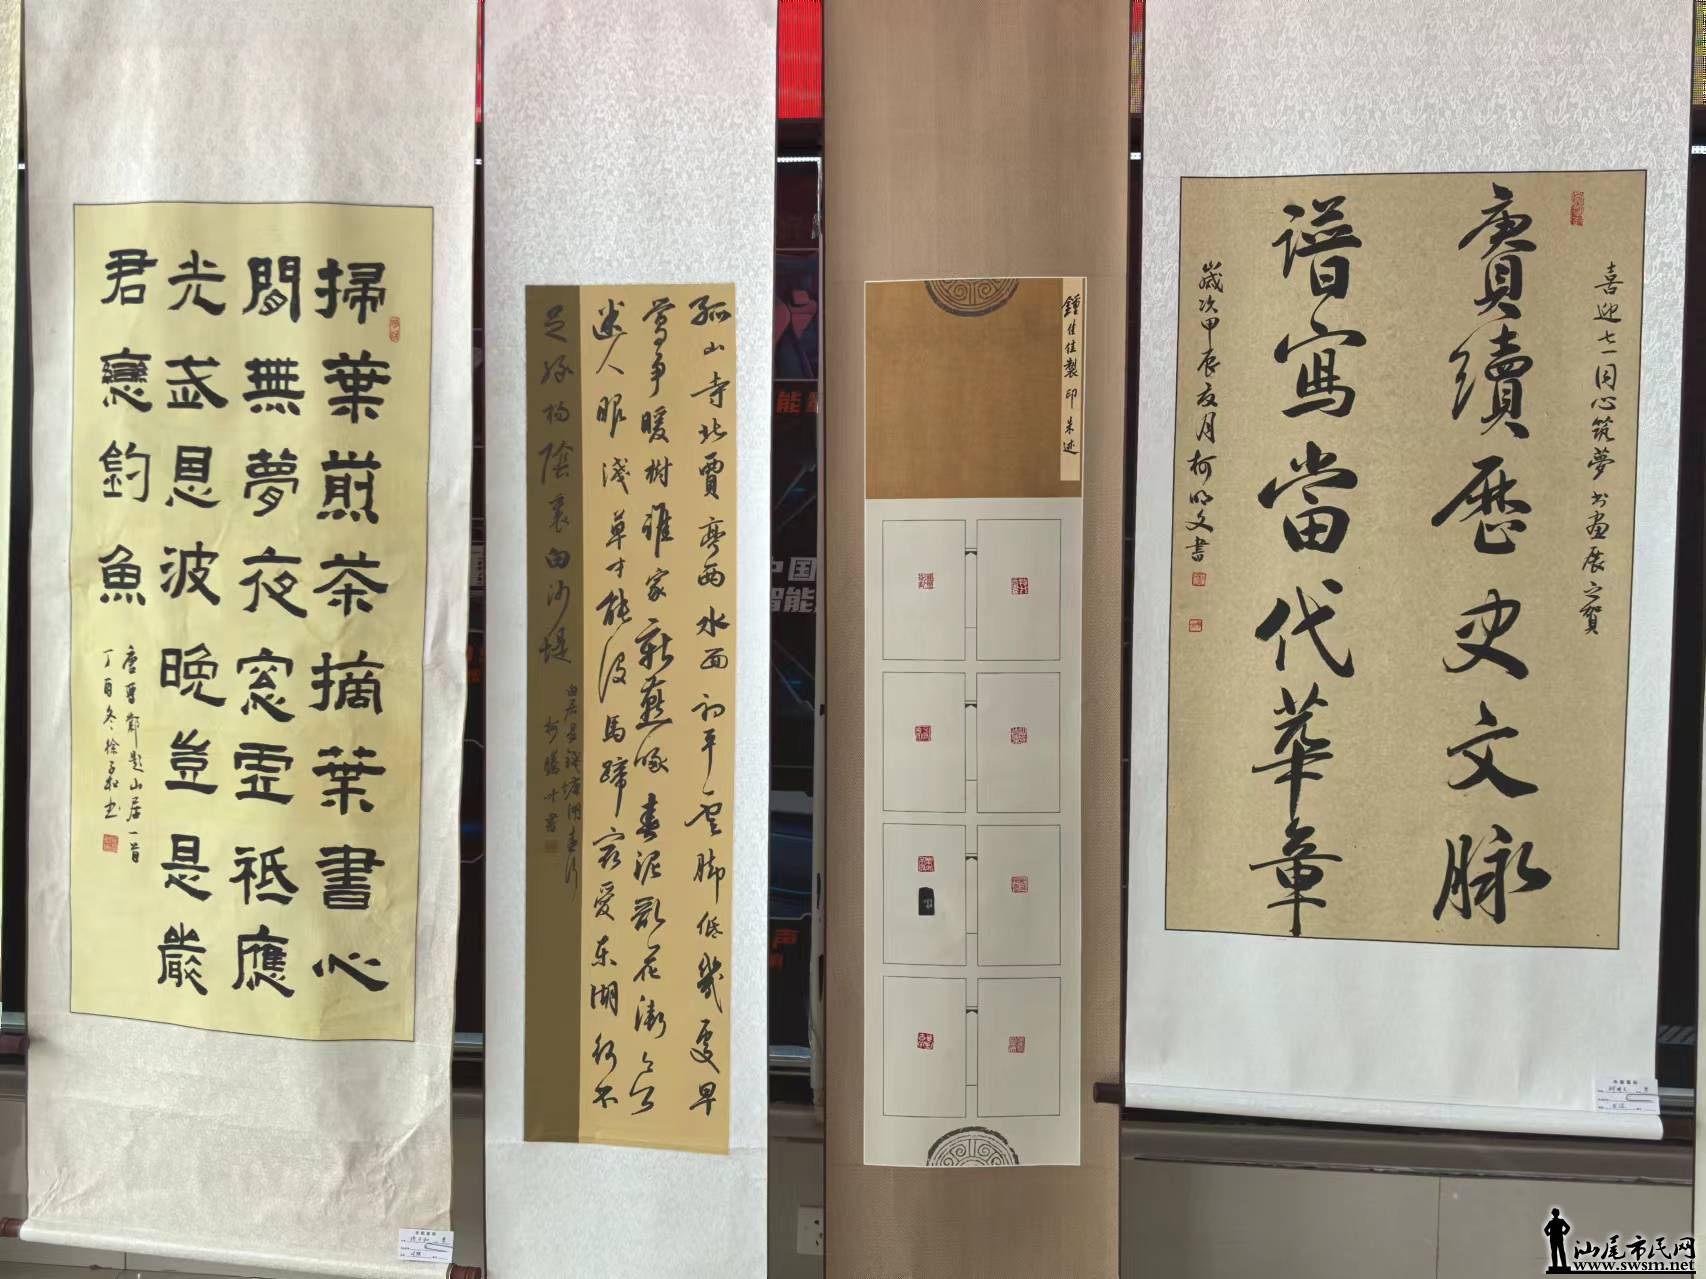 掃葉煎茶摘葉書心
閒無夢夜窓虚祗應
光武恩波晚豈是嚴
君戀釣魚
唐曹鄴題山居一首
丁酉冬徐子和书
孤山寺北賈亭西水面初平雲脚低幾處早
鶯爭暖樹誰家新燕啄春泥亂花漸欲
迷人眼淺草才能没馬蹄最愛东湖行不
足緑楊陰裏白沙堤
白居易錢塘湖春行
鍾佳佳製印朱迹
喜迎七一同心筑夢书画展之賀
賡續歷史文脉
譜寫當代華章
歲次甲辰夏月柯明文書
中国
智能
声
汕尾市民网
www.swsm.net